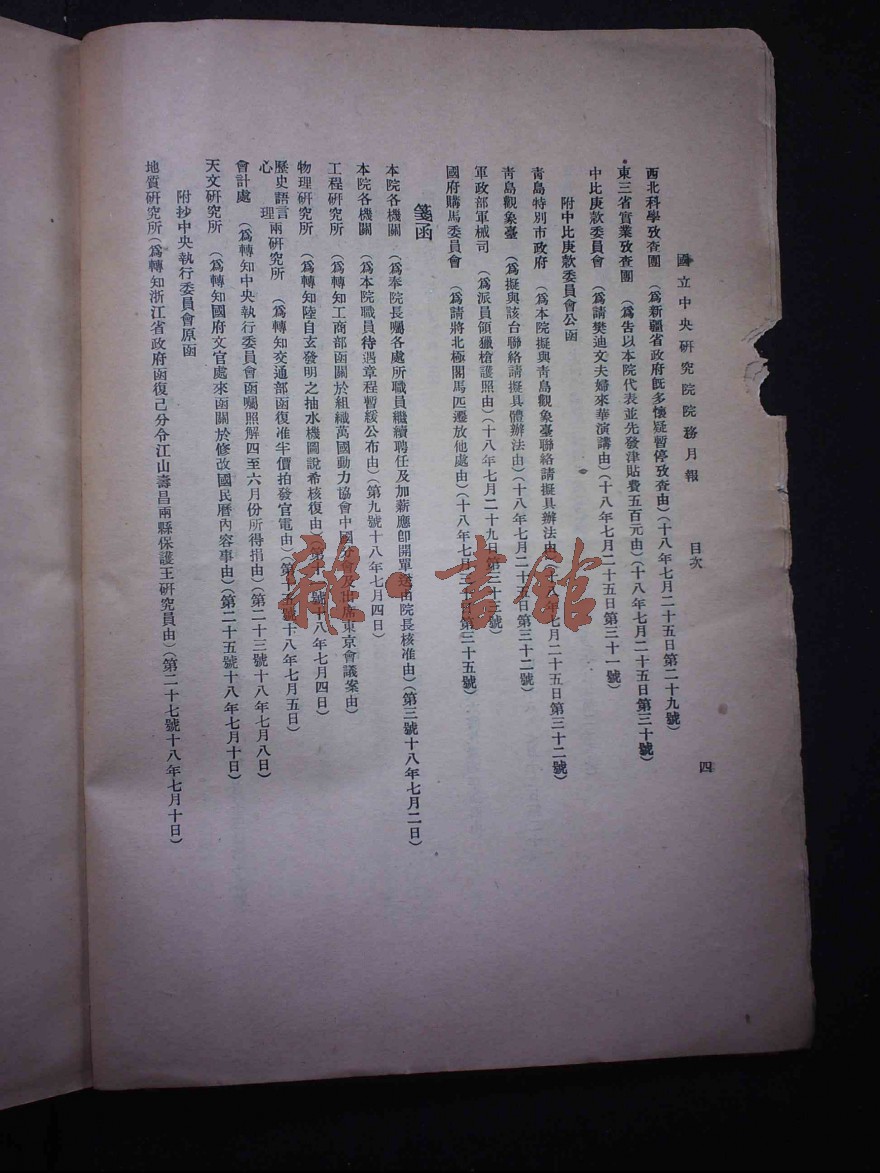 國立中央研究院院務月報 目次 四
西北科學攷查團 (爲新疆省政府旣多懷疑暫停攷查由)(十八年七月二十五日第二十九號)
東三省實業攷查團 (爲告以本院代表並先發津貼費五百元由)(十八年七月二十五日第三十號)
中比庚款委員會 (爲請樊迪文夫婦來華演講由)(十八年七月二十五日第三十一號)
附中比庚款委員會公函
青島特別市政府 (爲本院擬與青島觀象臺聯絡請擬具辦法由)(十八年七月二十五日第三十二號)
青島觀象臺 (爲擬與該台聯絡請擬具體辦法由)(十八年七月二十 日第三十二號)
軍政部軍械司 (爲派員領獵槍護照由)(十八年七月二十九日第三十三號)
國府購馬委員會 (爲請將北極閣馬匹遷放他處由)(十八年七月三十日第三十五號)
箋函
本院各機關 (爲奉院長囑各處所職員繼續聘任及加薪應卽開單送由院長核准由)(第三號十八年七月二日)
本院各機關 (爲本院職員待遇章程暫緩公布由)(第九號十八年七月四日)
工程研究所 (爲轉知工商部函關於組織萬國動力協會中國分會及出席東京會議案由)
物理研究所 (爲轉知陸自玄發明之抽水機圖說希核復由)(第十 號十八年七月四日)
歷史語言心理兩研究所 (爲轉知交通部函復准半價拍發官電由)(第十五號十八年七月五日)
會計處 (爲轉知中央執行委員會函囑照解四至六月份所得捐由)(第二十三號十八年七月八日)
天文研究所 (爲轉知國府文官處來函關於修改國民曆內容事由)(第二十五號十八年七月十日)
附抄中央執行委員會原函
地質研究所 (爲轉知浙江省政府函復已分令江山壽昌兩縣保護王研究員由)(第二十七號十八年七月十日)
雜·書館